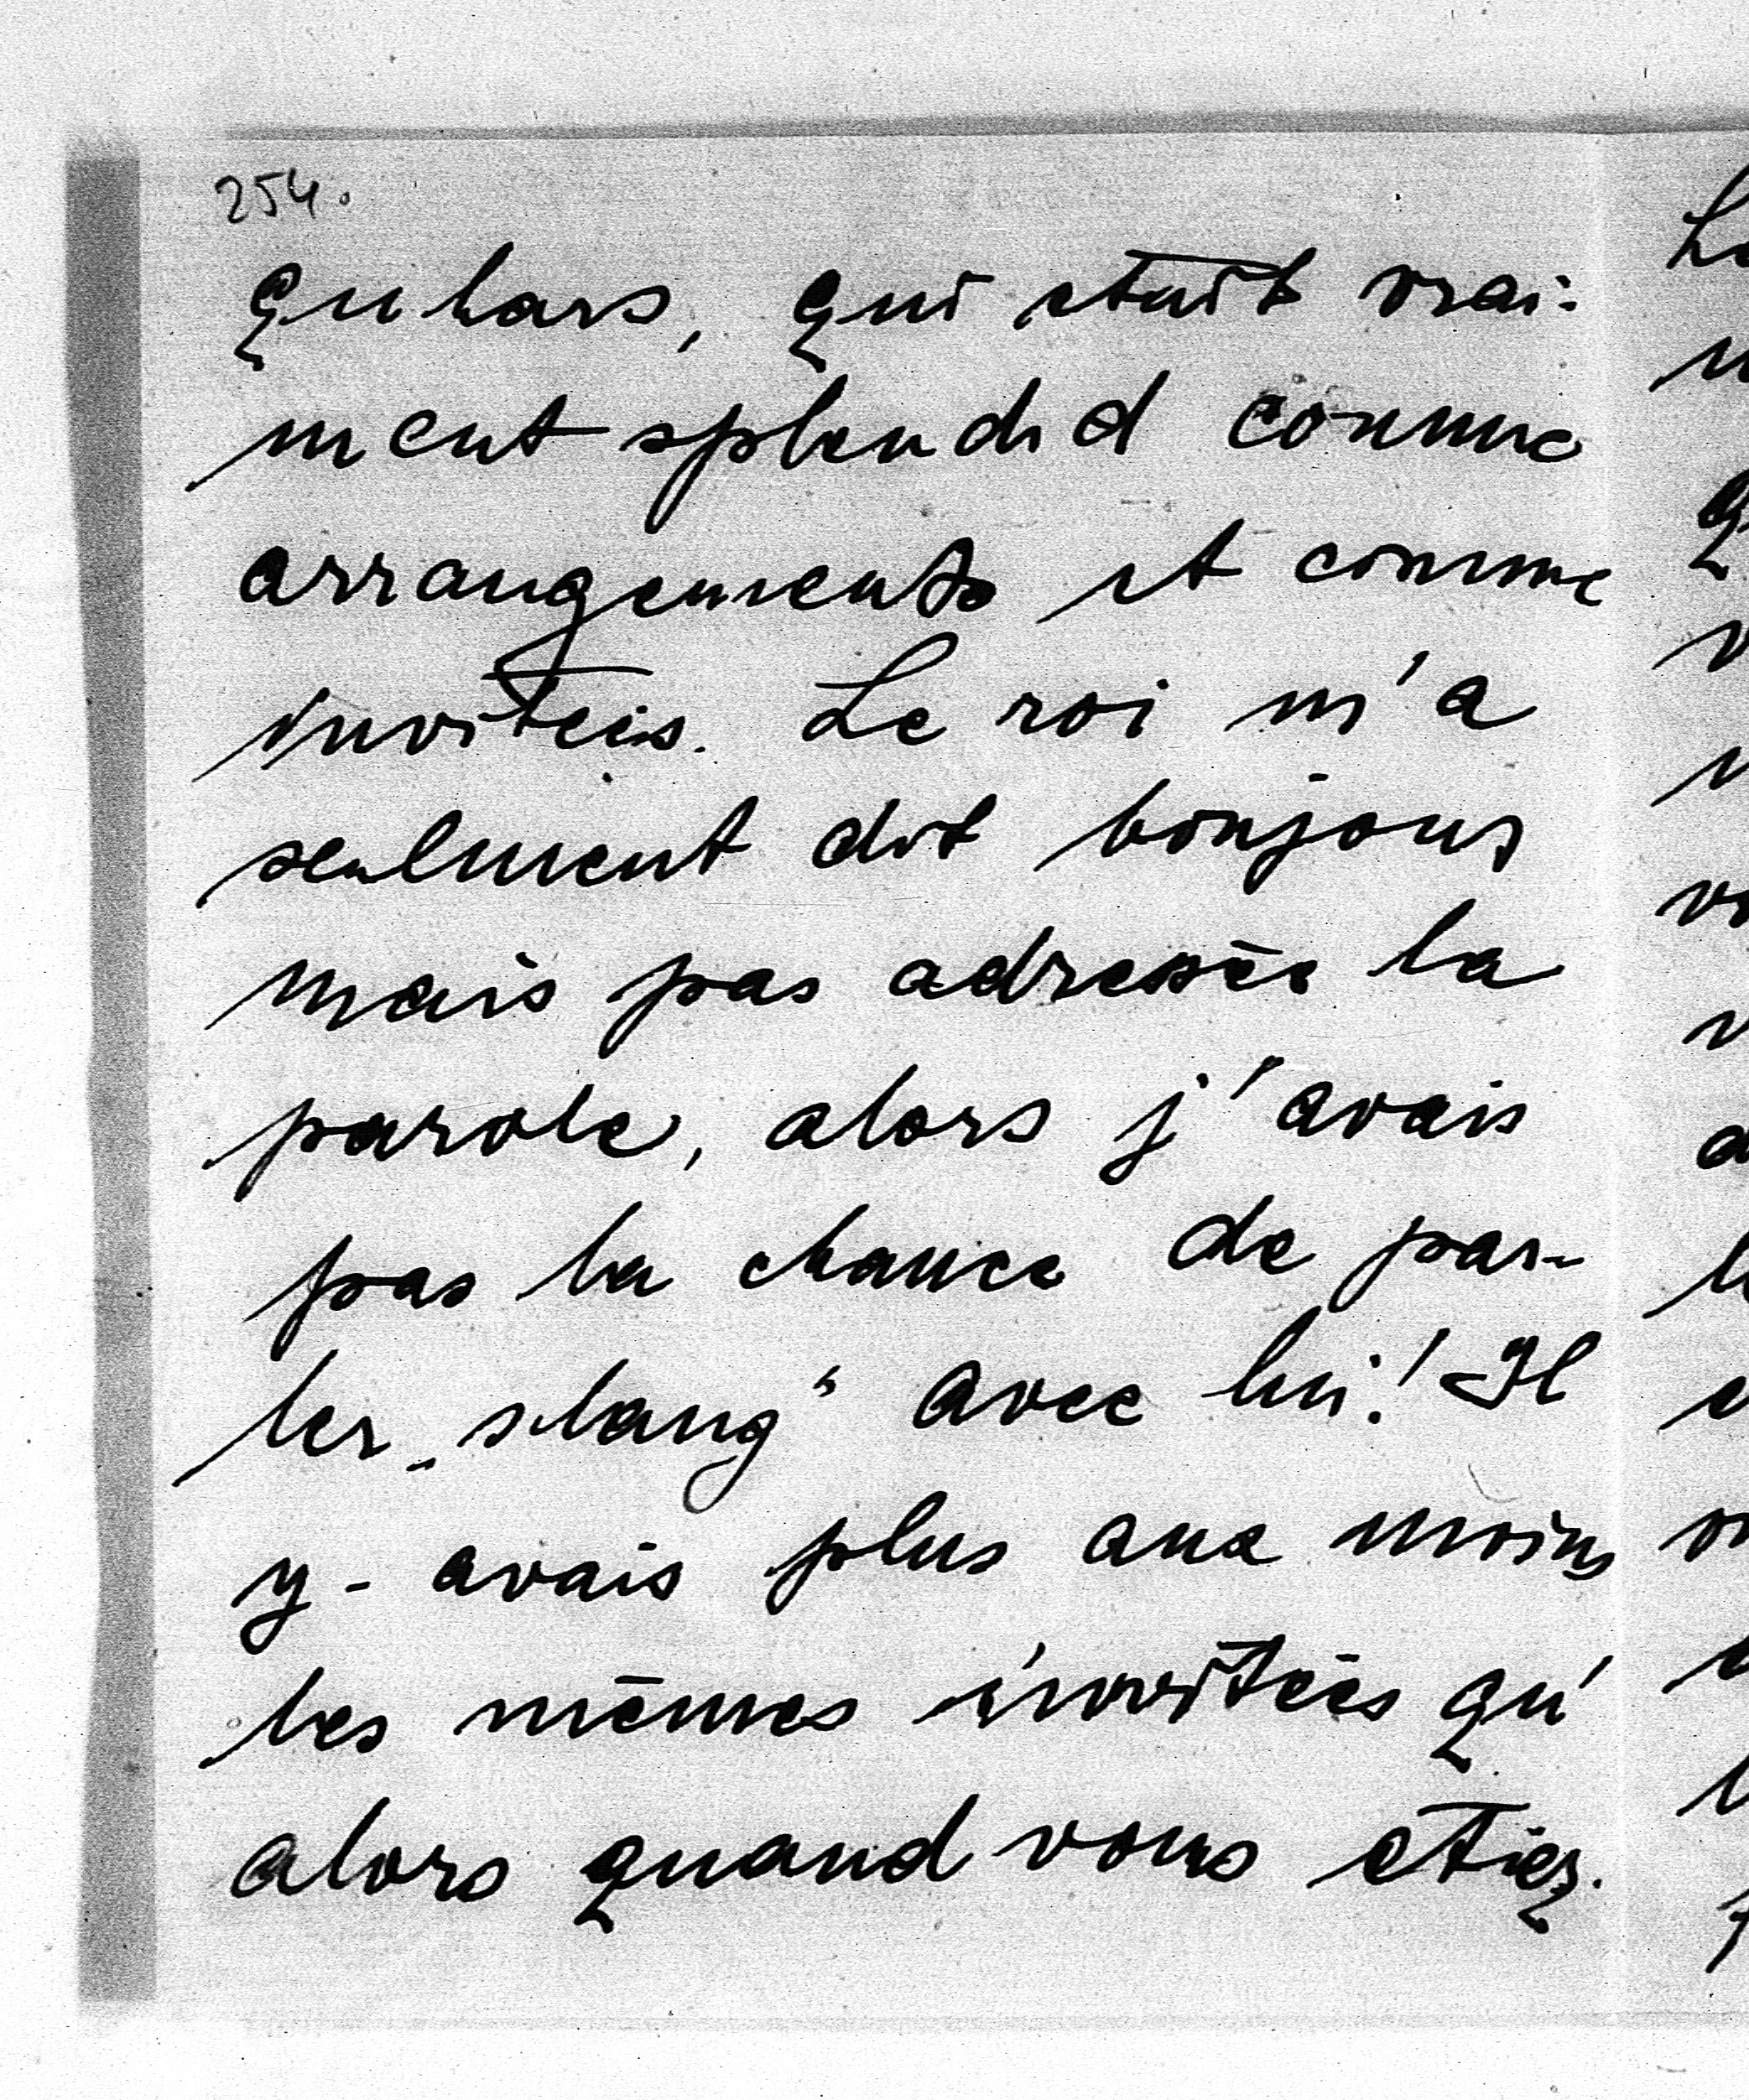 254.
Qu hars, qui etait vrai-
ment splendid comme
arrangements et comme
inviteis. Le roi m'a
seulment dit bonjour
mais pas adressée la
parole, alors j'avais
pas la chance de par-
ler „slang" avec lui! Il
y-avais plus aux moins
les mêmes invitées qu'
alors quand vous etiez.